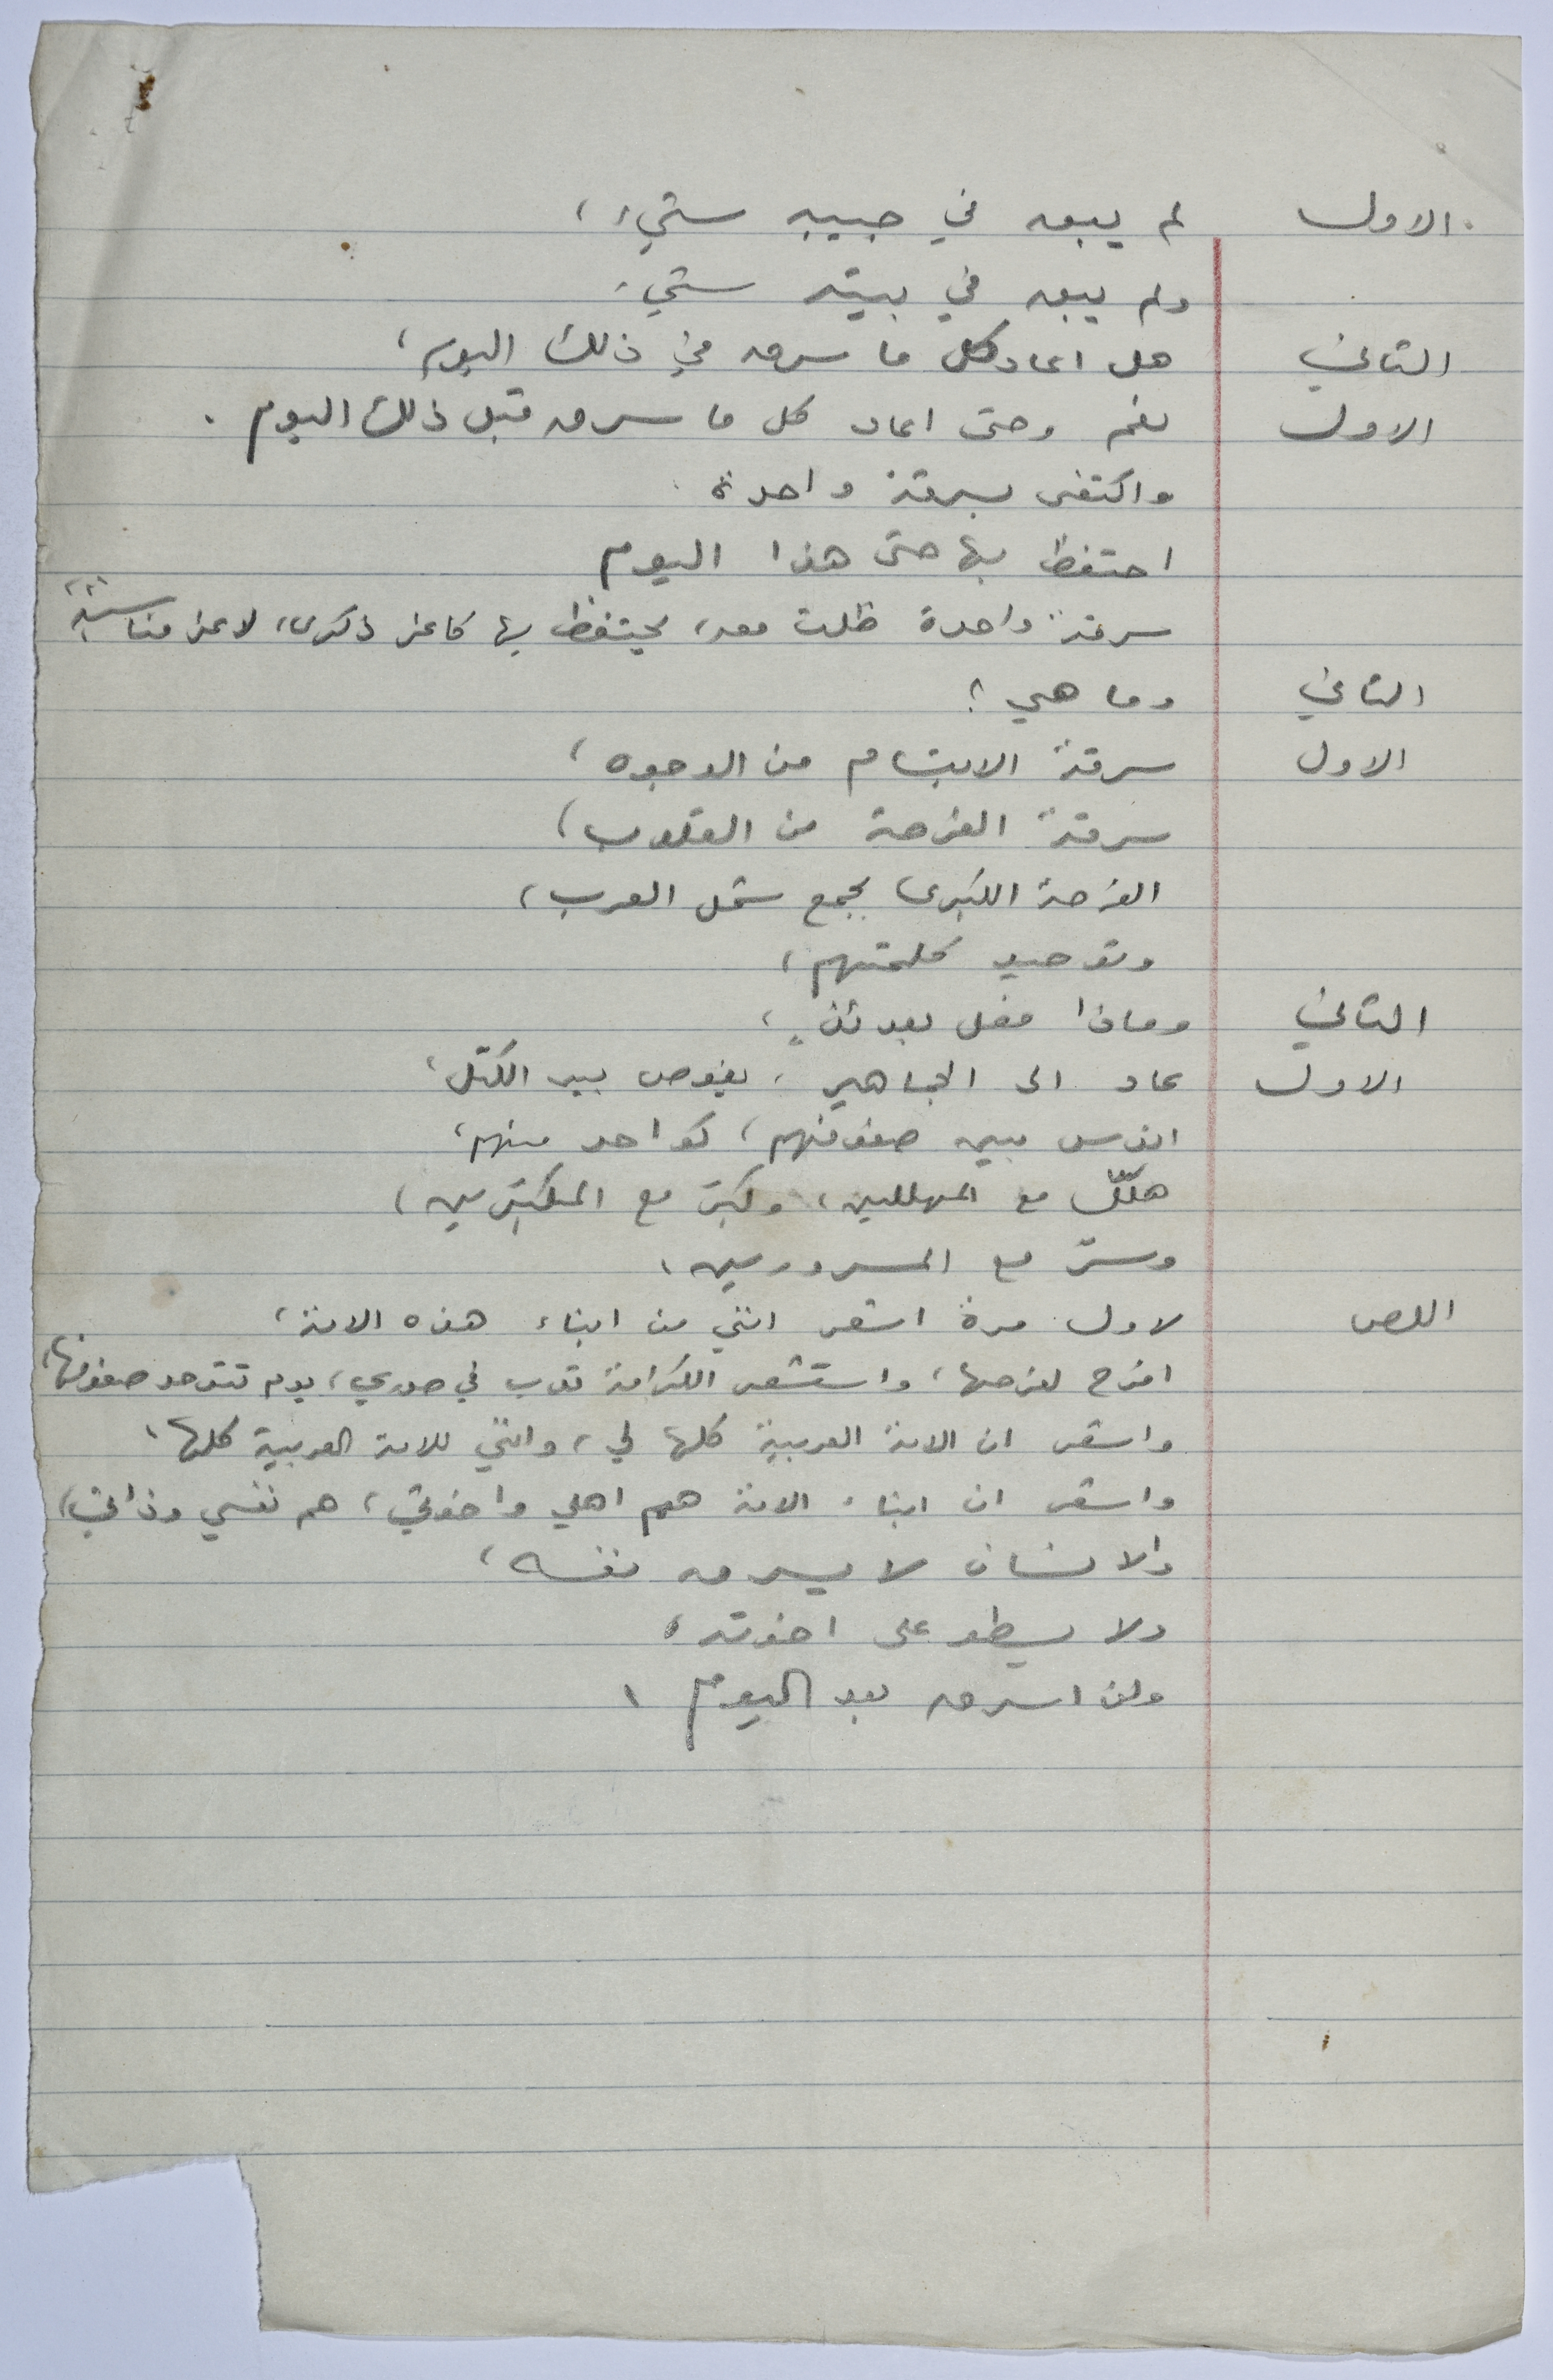 الاول لم يبق في جيبه شيء،
ولم يبق في بيته شيء.
الثاني هل اعاد كل ما سرق في ذلك اليوم؟
الاول نعم وحتى اعاد كل ما سرق قبل ذلك اليوم.
واكتفى بسرقة واحدة
احتفظ بها حتى هذا اليوم
سرقة واحدة ظلت معه، يحتفظ بها كاعز ذكرى، لاعز مناسبة
الثاني وما هي؟
الاول سرقة الابتسام من الوجوه،
سرقة الفرحة من القلوب،
الفرحة الكبرى بجمع شمل العرب،
وتوحيد كلمتهم،
الثاني وماذا فعل بعدئذٍ؟
الاول عاد الى الجماهير، يغوص بين الكتل،
اندس بين صفوفهم، كواحد منهم،
هلّل مع المهللين، وكبّر مع المكبّرين،
وسرّ مع المسرورين.
اللص لاول مرة اشعر انني من ابناء هذه الامة،
افرح لفرحها، واستشعر الكرامة تدب في صدري، يوم تتوحد صفوفها،
واشعر ان الامة العربية كلها لي، وانني للامة العربية كلها،
واشعر ان ابناء الامة هم اهلي واخوتي، هم نفسي وذاتي،
والانسان لا يسرق نفسه،
ولا يسطو على اخوته،
ولن اسرق بعد اليوم.